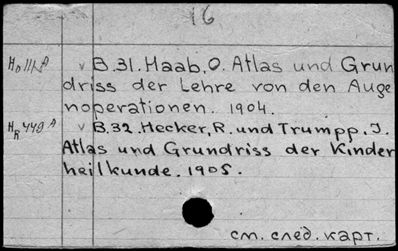 16
v B.31. Haab, O. Atlas und Grun
driss der Lehre von den Auge
noperationen. 1904.
HR 449 A v B.32. Hecker, R. und Trumpp. J.
Atlas und Grundriss der Kinder
heilkunde. 1905.
см. след. карт.